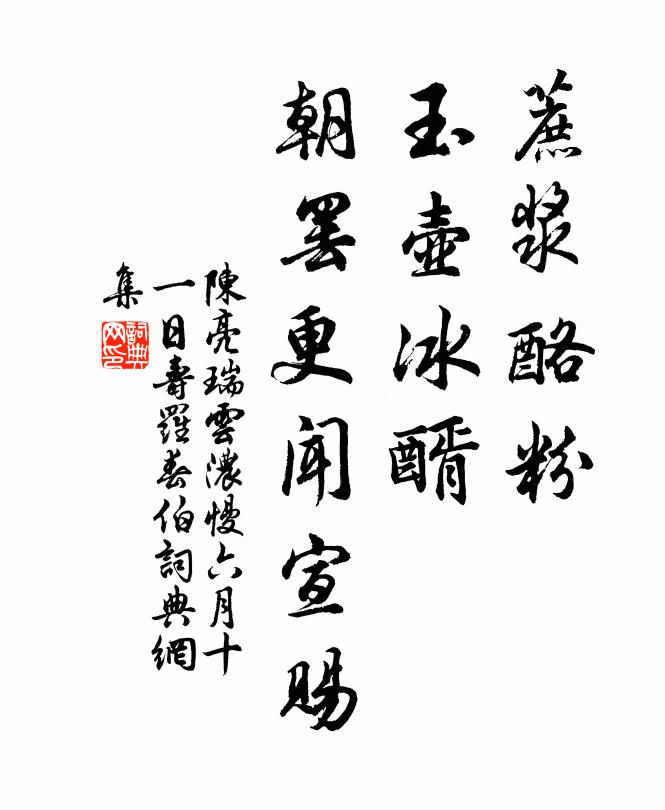 蔗漿酪粉
玉壺冰醑
朝罷更聞宣賜
陳亮瑞雲濃慢六月十
一日壽羅春伯詞典網
集
詞典
网印